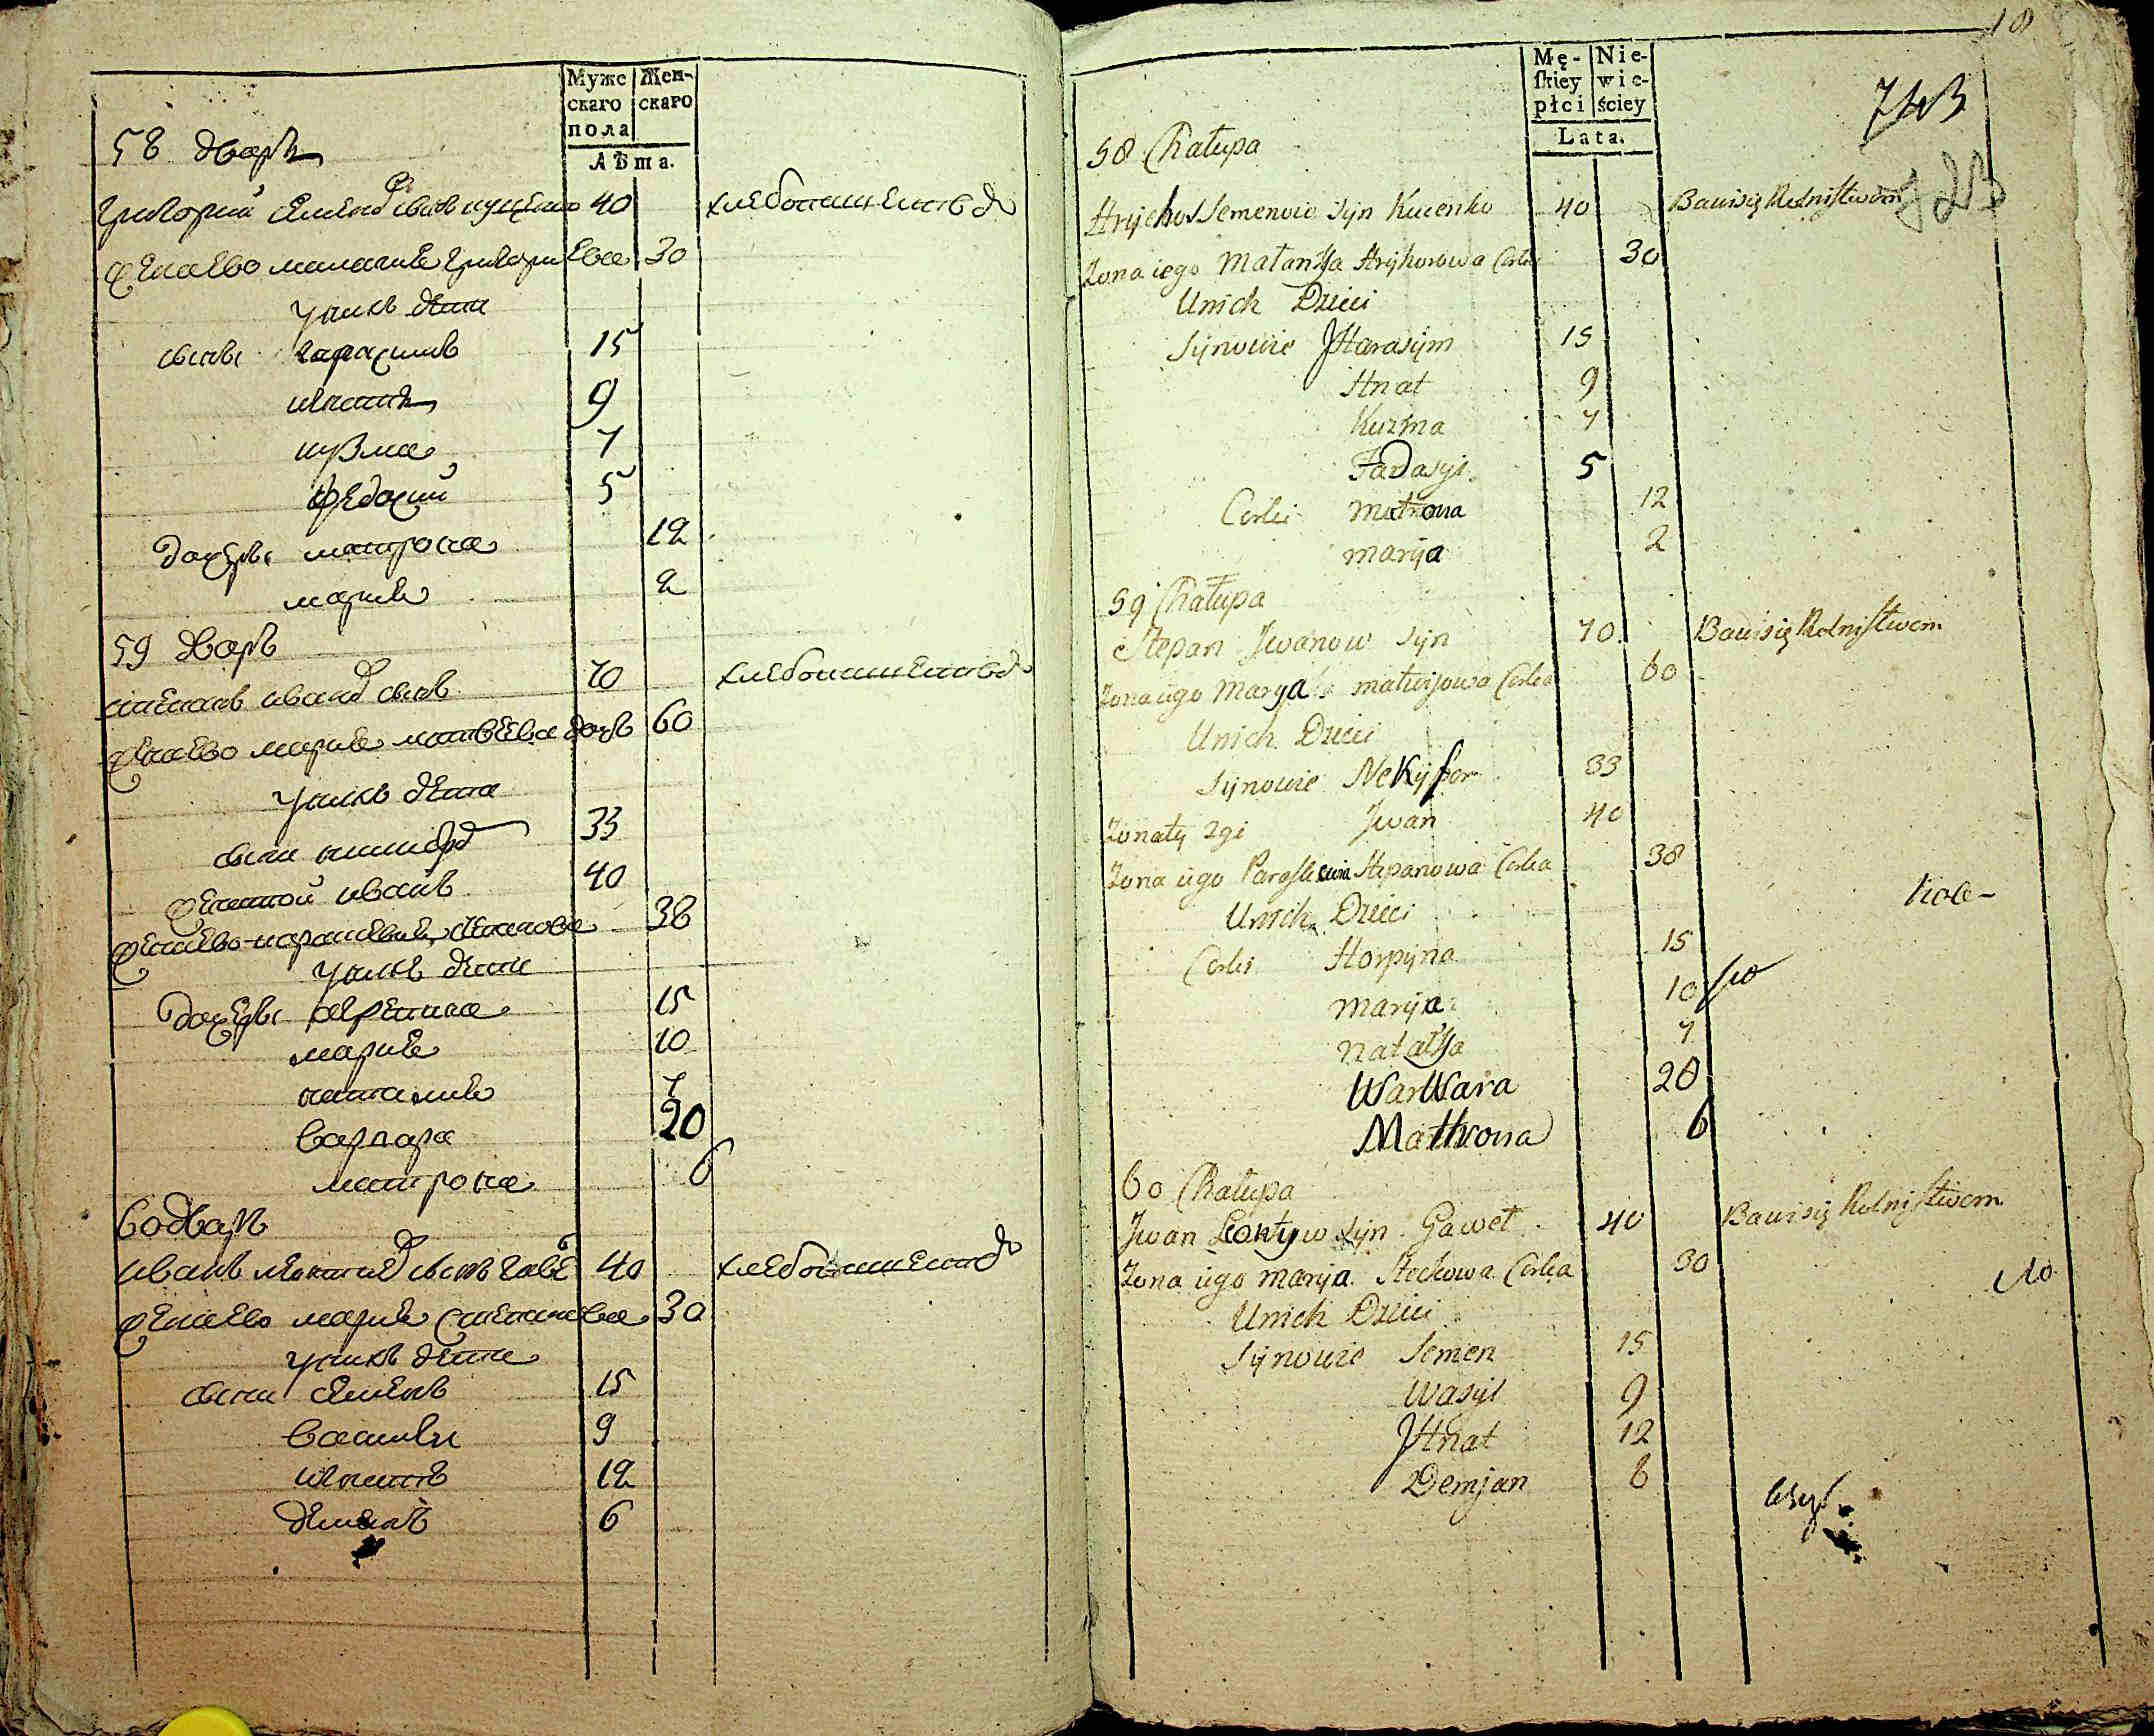 Муже
скаго
пола
Жен-
скаго
Лѣта.
58 дворъ
григорий семенов сынъ куценко 40 хлебопашеством
жена ево малания григориева 30
у них дети
сыны гарасимъ 15
игнатъ 9
кузма 7
федосий 5
дочеры матрона 12
мария 2
59 дворъ
степанъ иванов сынъ 70 хлебопашеством
жена ево мария матвеева дочь 60
у нихъ дети
сыны никифор 33
женатой иванъ 40
жена ево параскевия степанова 38
у нихъ дети
дочеры агрепина 15
мария 10
наталия 7
варвара 20
матрона 6
60 дворъ
иванъ леонтиев сынъ гавел 40 хлебопашеством
жена ево мария степанова 30
у нихъ дети
сыны семенъ 15
василь 9
игнатъ 12
демянъ 6
18
Mę-
skiey
płci
Nie-
wie-
ściey
Lata.
743
58 Chałupa
Hryhor Semenow Syn Kucenko 40 Bawi się Rolnistwem
Zona iego Małanya Hryhorowa Corka 30
Unich Dzieci
Synowie Harasym 15
Hnat 9
Kuzma 7
Fadasyi 5
Corki Matrona 12
Marya 2
59 Chałupa
Stepan Jwanow Syn 70 Bawi się Rolnistwem
Zona iego Marya matwijowa Corka 60
Unich Dzieci
Synowie Nekyfor 33
Zonaty 2gi Jwan 40
Zona iego Paraskewia Stepanowa Corka 38
Unich Dzieci
Corki Horpyna 15
Marya 10
Natalya 7
WarWara 20
Mathrona 6
60 Chałupa
Jwan Leontyw Syn Gaweł 40 Bawi się Rolnistwem
Zona iego Marya Steckowa Corka 30
Unich Dzieci
Synowie Semen 15
Wasyl 9
Hnat 12
Demjan 6